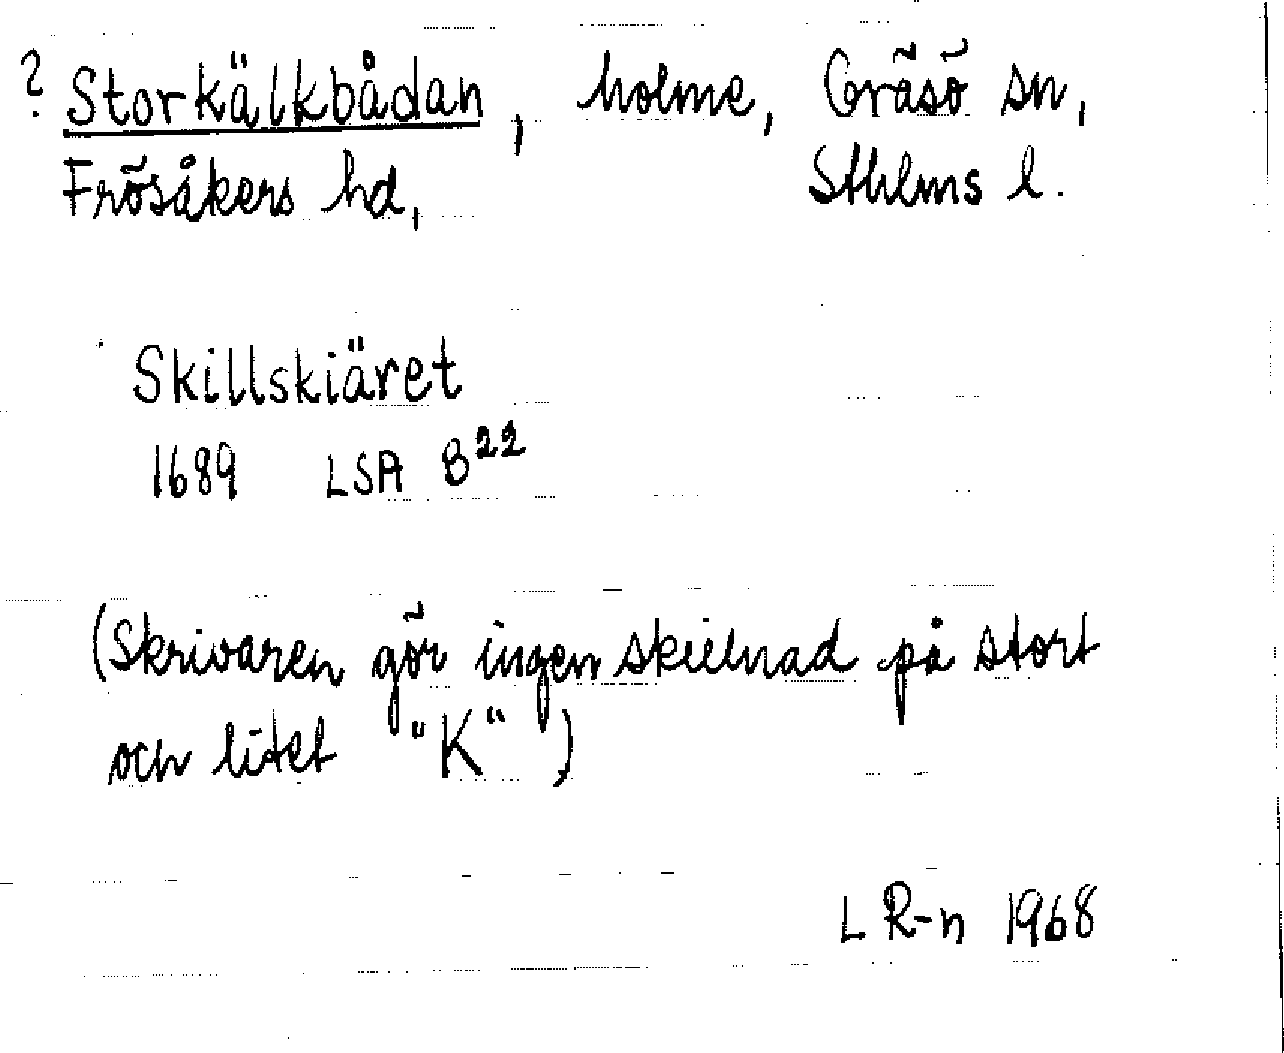 ? Storkälkbådan, holme, Gräsö sn,
Frösåkers hd, Sthlms l.
Skillskiäret
1689 LSA B²²
(Skrivaren gör ingen skillnad på stort
och litet "K")
L R-n 1968